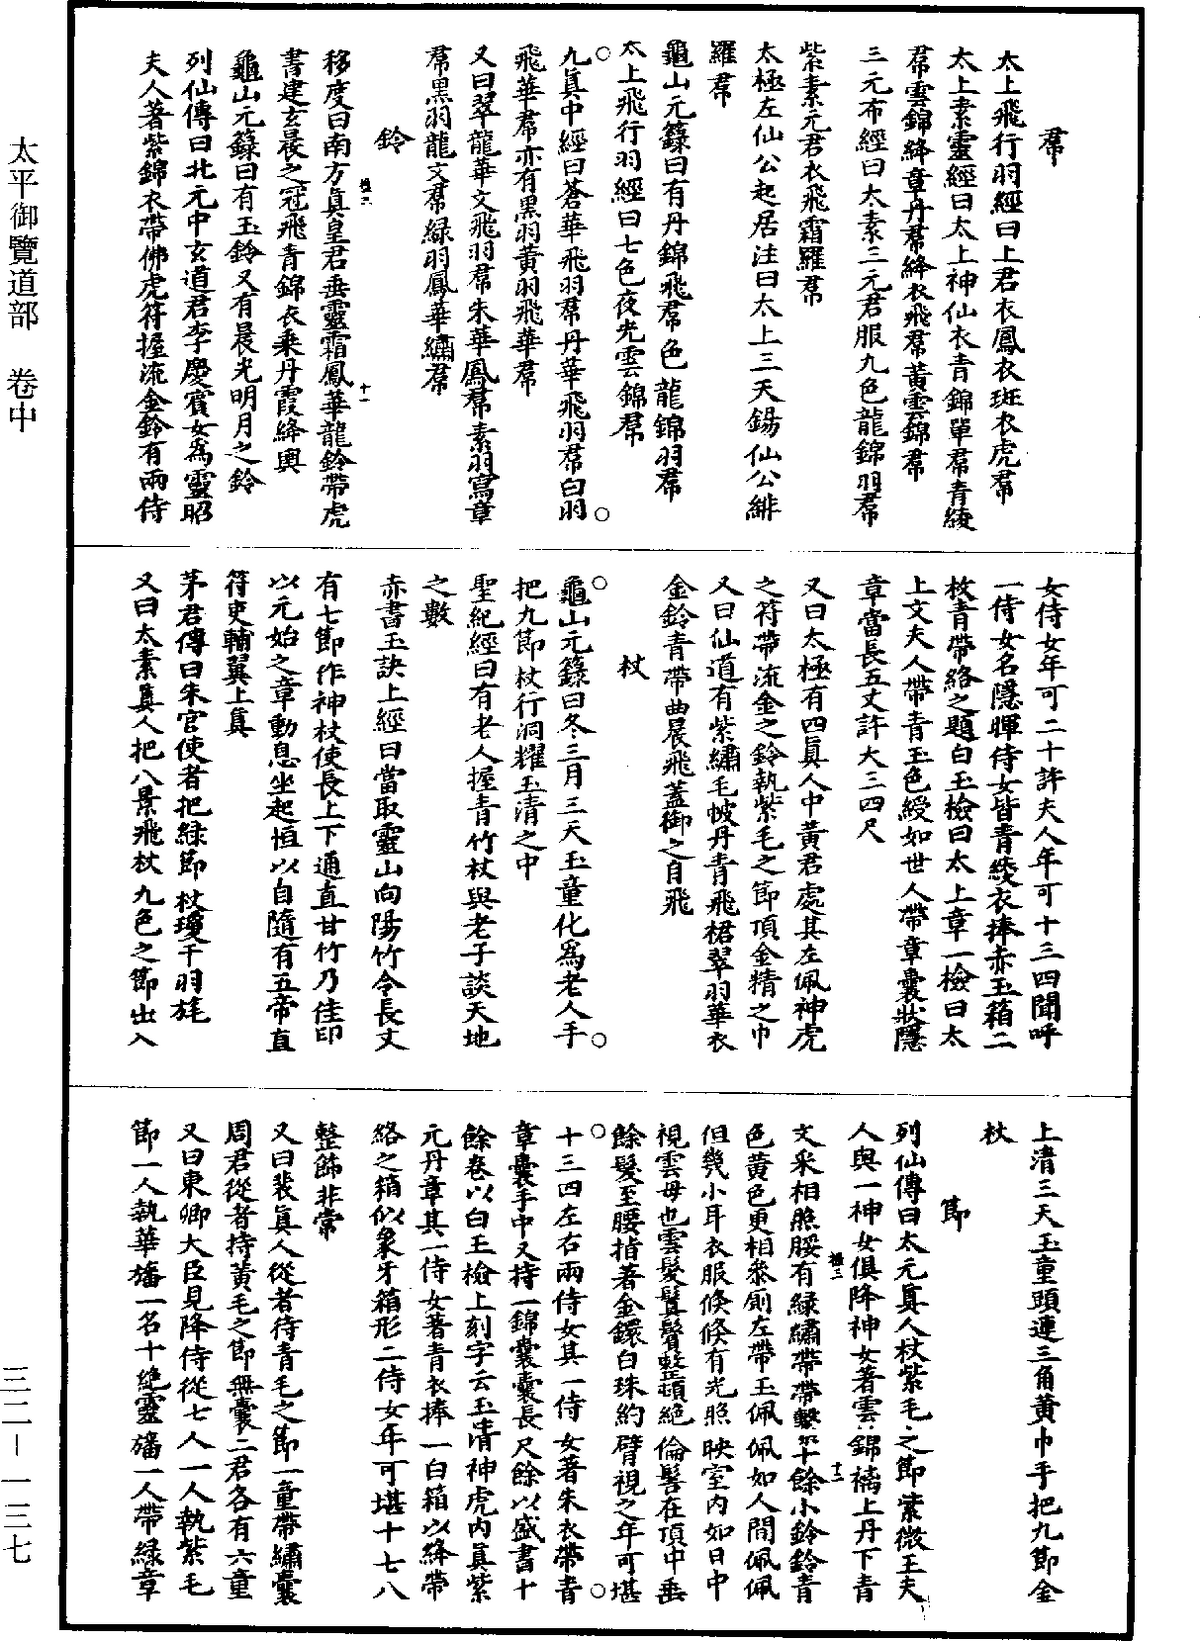 太平御覽道部　卷中
三二—一三七
帬
太上飛行羽經曰上君衣鳳衣斑衣虎帬
太上素靈經曰太上神仙衣青錦單帬青綾
帬雲錦絳章丹帬絳衣飛帬黃雲錦帬
三元布經曰太素三元君服九色龍錦羽帬
紫素元君衣飛霜羅帬
太極左仙公起居注曰太上三天錫仙公緋
羅帬
龜山元籙曰有丹錦飛帬色龍錦羽帬
太上飛行羽經曰七色夜光雲錦帬
九真中經曰蒼華飛羽帬丹華飛羽帬白羽
飛華帬亦有黑羽黃羽飛華帬
又曰翠龍華文飛羽帬朱華鳳帬素羽寫章
帬黑羽龍文帬緑羽鳳華繡帬
鈴
移度曰南方真皇君垂靈霜鳳華龍鈴帶虎
書建玄晨之冠飛青錦衣乘丹霞絳輿
龜山元籙曰有玉鈴又有晨光明月之鈴
列仙傳曰北元中玄道君李慶賓女爲靈昭
夫人著紫錦衣帶佛虎符握流金鈴有兩侍
女侍女年可二十許夫人年可十三四聞呼
一侍女名隱暉侍女皆青綾衣捧赤玉箱二
枚青帶絡之題白玉檢曰太上章一檢曰太
上文夫人帶青玉色綬如世人帶章囊狀隱
章當長五丈許大三四尺
又曰太極有四真人中黃君處其左佩神虎
之符帶流金之鈴執紫毛之節頂金精之巾
又曰仙道有紫繡毛帔丹青飛桾翠羽華衣
金鈴青帶曲晨飛蓋御之自飛
杖
龜山元籙曰冬三月三天玉童化爲老人手
把九節杖行洞耀玉清之中
聖紀經曰有老人握青竹杖與老子談天地
之數
赤書玉訣上經曰當取靈山向陽竹令長丈
有七節作神杖使長上下通直甘竹乃佳印
以元始之章動息坐起恒以自隨有五帝直
符吏輔翼上真
茅君傳曰朱官使者把緑節杖瓊千羽旄
又曰太素真人把八景飛杖九色之節出入
上清三天玉童頭連三角黃巾手把九節金
杖
節
列仙傳曰太元真人杖紫毛之節紫微王夫
人與一神女俱降神女著雲錦襡上丹下青
文采相照腰有緑繡帶帶繫十餘小鈴鈴青
色黃色更相叅廁左帶玉佩佩如人間佩佩
但幾小耳衣服倏倏有光照映室内如日中
視雲母也雲髮鬒鬢整頓絕倫髻在頂中垂
餘髮至腰指著金鐶白珠約臂視之年可堪
十三四左右兩侍女其一侍女著朱衣帶青
章囊手中又持一錦囊囊長尺餘以盛書十
餘卷以白玉檢上刻字云玉清神虎内真紫
元丹章其一侍女著青衣捧一白箱以絳帶
絡之箱似象牙箱形二侍女年可堪十七八
整飾非常
又曰裴真人從者待青毛之節一童帶繡囊
周君從者持黃毛之節無囊二君各有六童
又曰東卿大臣見降侍從七人一人執紫毛
節一人執華旛一名十絕靈旛一人帶緑章